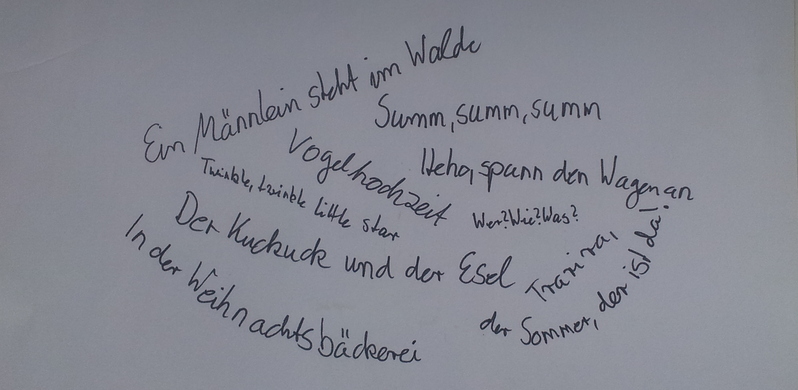 Ein Männlein steht im Walde
Summ, summ, summ
Vogelhochzeit
Heho, spann den Wagen an
Twinkle, twinkle little star
Wer? Wie? Was?
Der Kuckuck und der Esel
Trarira,
der Sommer, der ist da!
In der Weihnachtsbäckerei